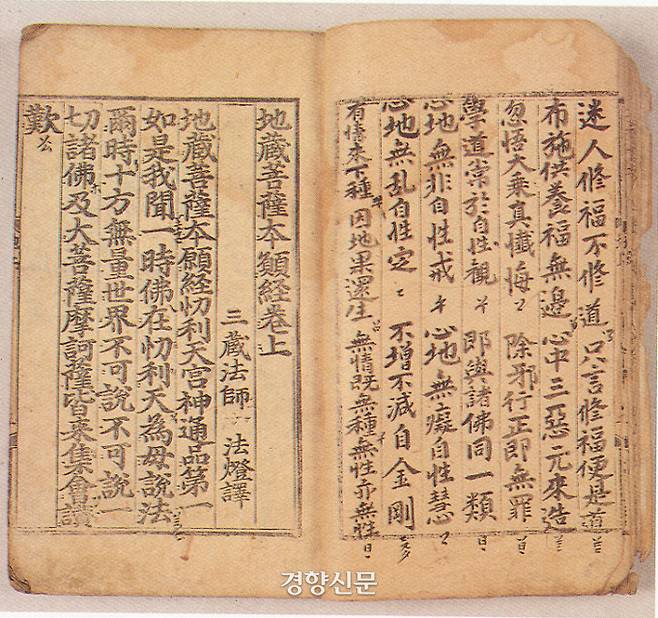 迷人修福不修道 只言修福便是道
布施供養福無邊 心中三惡元來造
忽悟大乘真懺悔 除邪行正即無罪
學道常於自性觀 即與諸佛同一類
心地無非自性戒 心地無癡自性慧
心地無乱自性定 不增不減自金剛
有情來下種 因地果還生 無情既無種 無性亦無性
地藏菩薩夲願經卷上
三藏法師 法燈譯
地藏菩薩夲願經忉利天宮神通品第一
如是我聞一時佛在忉利天為母說法
爾時十方無量世界不可說不可說一
切諸佛及大菩薩摩訶薩皆來集會讚
歎
경향신문